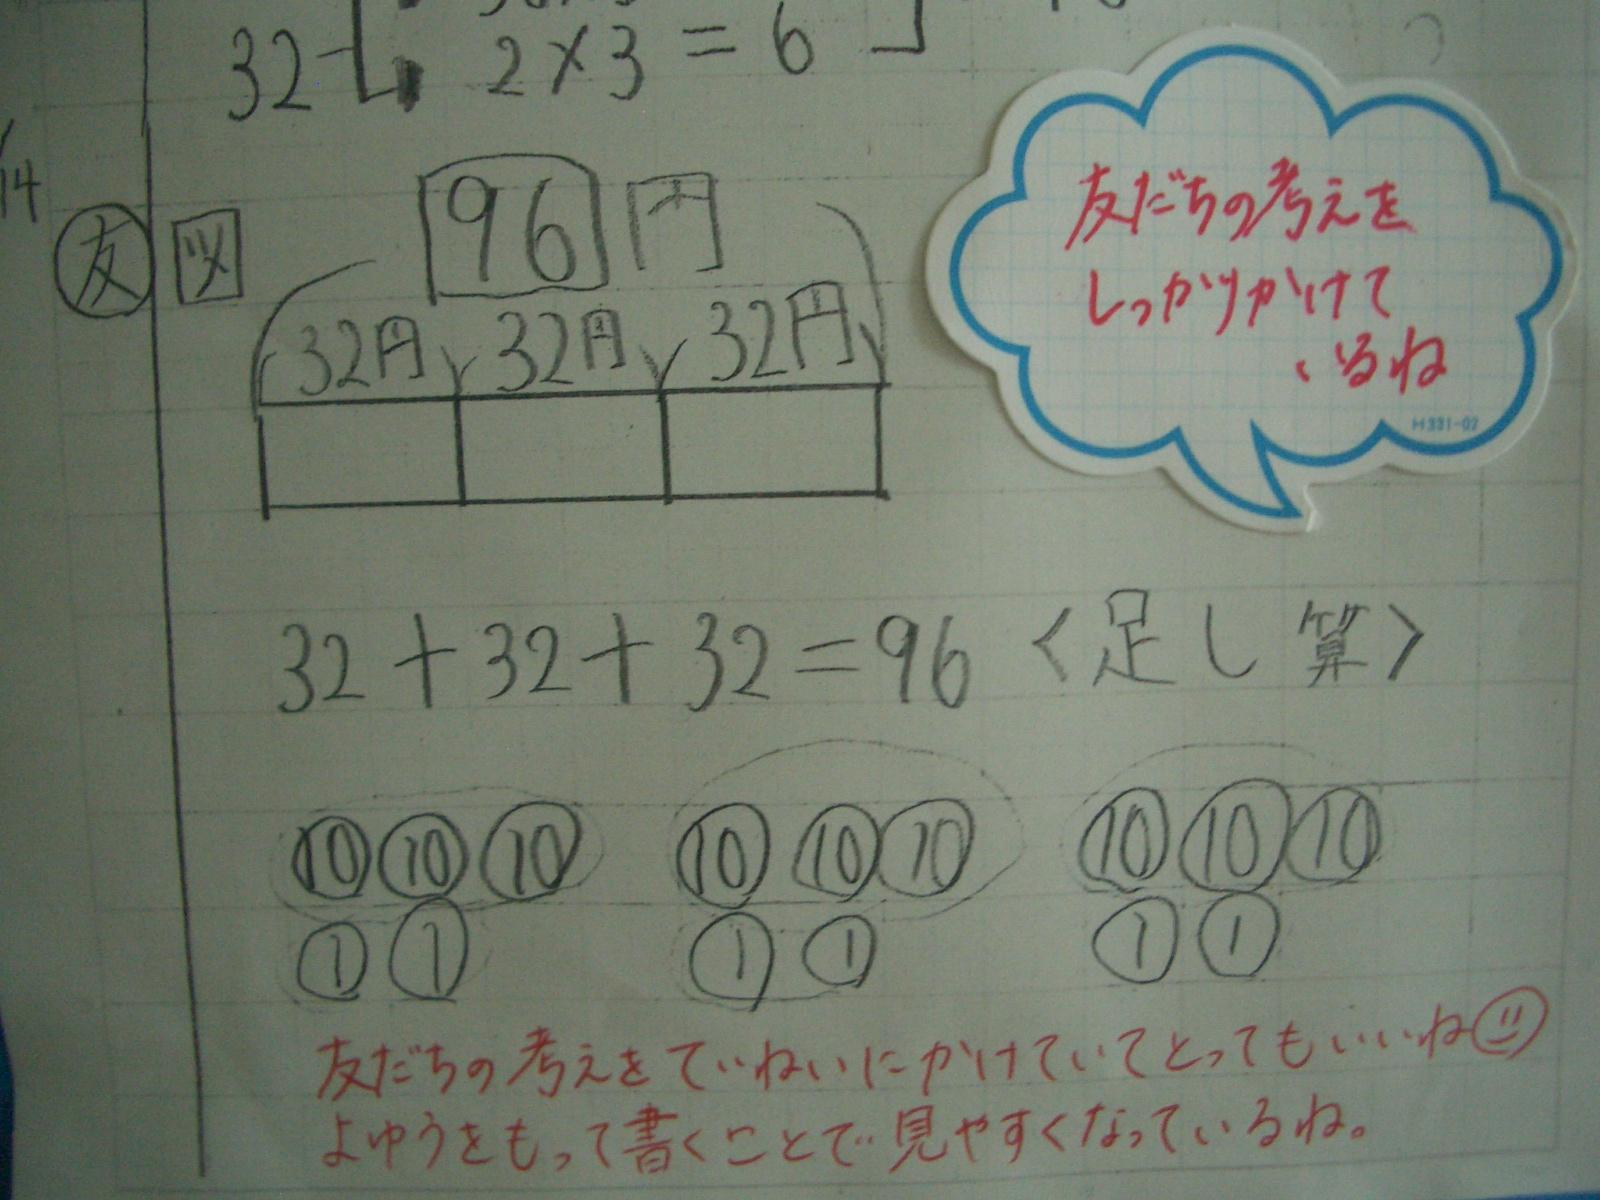 32
2×3=6
14
友
図
96円
32円 32円 32円
友だちの考えを
しっかりかけて
いるね
H331-02
32+32+32=96 〈足し算〉
10 10 10 10 10 10 10 10 10
1 1 1 1 1 1
友だちの考えをていねいにかけていてとってもいいね
よゆうをもって書くことで見やすくなっているね。